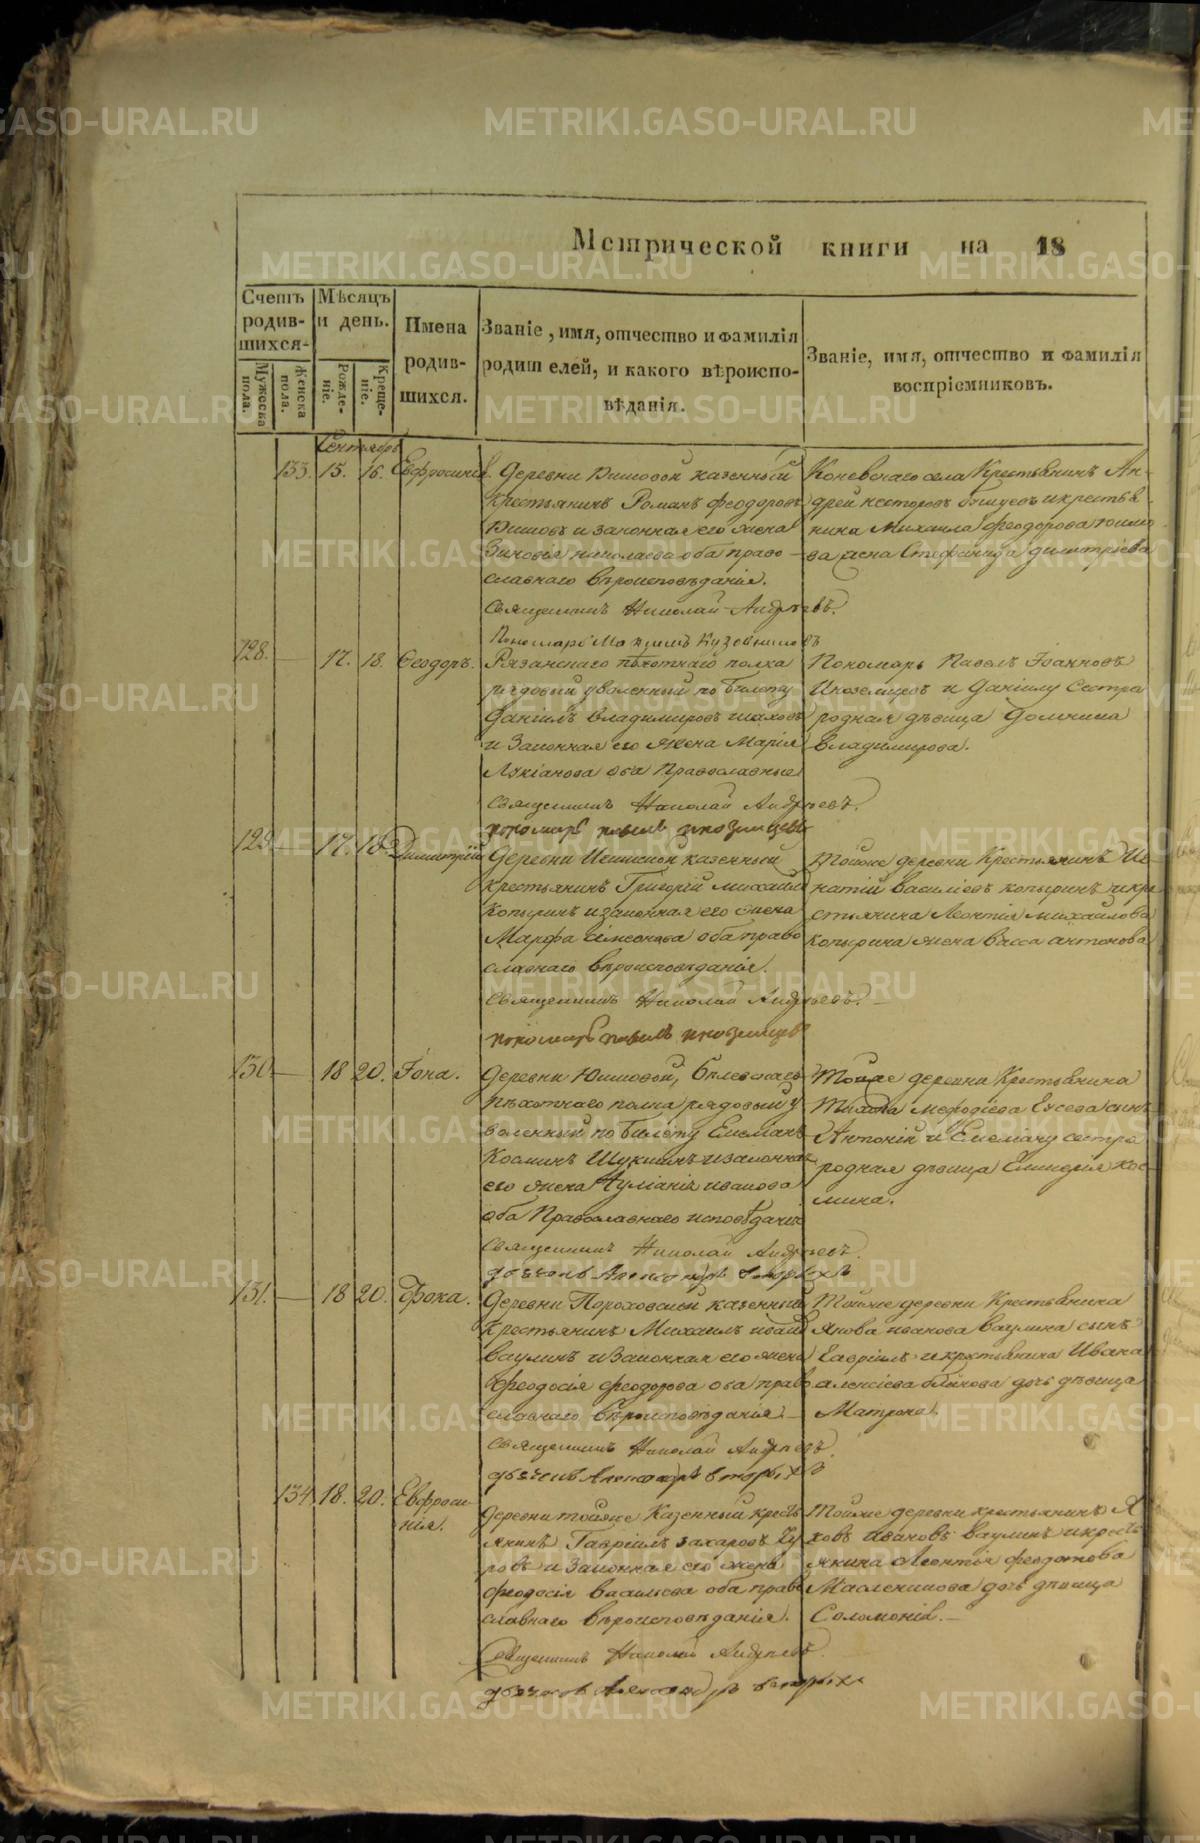 Метрической книги на 18
Счетъ родив-шихся.
Мѣсяцъ и день.
Имена родив-шихся.
Званіе, имя, отчество и фамилія родителей, и какого вѣроиспо-вѣданія.
Званіе, имя, отчество и фамилія воспріемниковъ.
Мужеска пола.
Женска пола.
Рожде-ніе.
Креще-ніе.
Сентябрь
133. 15. 16. Евфросинія
Деревни казенный
крестьянинъ Романъ феодоровъ
и законная его жена
Зиновія николаева оба право-
славнаго вѣроисповѣданія.
Священникъ Николай Андреевъ.
Пономарь
Коневскаго села Крестьянинъ Ан-
дрей несторовъ и крестья-
нина Михаила феодорова
жена Стефанида димитріева
128. — 17. 18. Ѳеодоръ.
Рязанскаго пѣхотнаго полка
рядовый уволенный по билету
Даніилъ владимировъ
и Законная его жена Марія
Лукіанова оба Православные
Священникъ Николай Андреевъ.
пономарь павелъ иноземцевъ
Пономарь Павелъ Іоанновъ
Иноземцовъ и Даніилу сестра
родная дѣвица Домника
владимирова.
129 — 17. 18 Димитрій
Деревни казенный
крестьянинъ Григорій михаиловъ
копыринъ и законная его жена
Марфа сімеонова оба право
славнаго вѣроисповѣданія.
Священникъ Николай Андреевъ.
пономарь павелъ иноземцевъ
Тойже деревни Крестьянинъ Иг-
натій василіевъ копыринъ и кре
стьянина Леонтія михайлова
копырина жена васса антонова
130 — 18 20. Іона.
Деревни Юшковой, Бѣлевскаго
пѣхотнаго полка рядовый у
воленный по билету
Косминъ Щукинъ и законная
его жена иванова
оба Православнаго исповѣданія
Священникъ Николай Андреевъ.
дьячекъ Александръ вторыхъ
Тойже деревни Крестьянина
мефодіева сынъ
Антоній и сестра
родная дѣвица Кос-
мина.
131. — 18 20. Фока.
Деревни Пороховской казенный
крестьянинъ Михаилъ
ваулинъ и Законная его жена
феодосія феодорова оба право
славнаго вѣроисповѣданія. —
Священникъ Николай Андреевъ.
дьячекъ Александръ вторыхъ
Тойже деревни Крестьянина
Якова иванова ваулина сынъ
Гавріилъ и крестьянина Ивана
алексіева дочь дѣвица
Матрона.
134 18. 20. Евфроси-
нія.
Деревни тойже Казенный кресть
янинъ Гавріилъ захаровъ
и Законная его жена
феодосія васильева оба право
славнаго вѣроисповѣданія.
Священникъ Николай Андреевъ.
дьячекъ Александръ вторыхъ
Тойже деревни крестьянинъ Я
ковъ ивановъ ваулинъ и кресть
янина Леонтія феодотова
Масленникова дочь дѣвица
Соломонія. —
METRIKI.GASO-URAL.RU